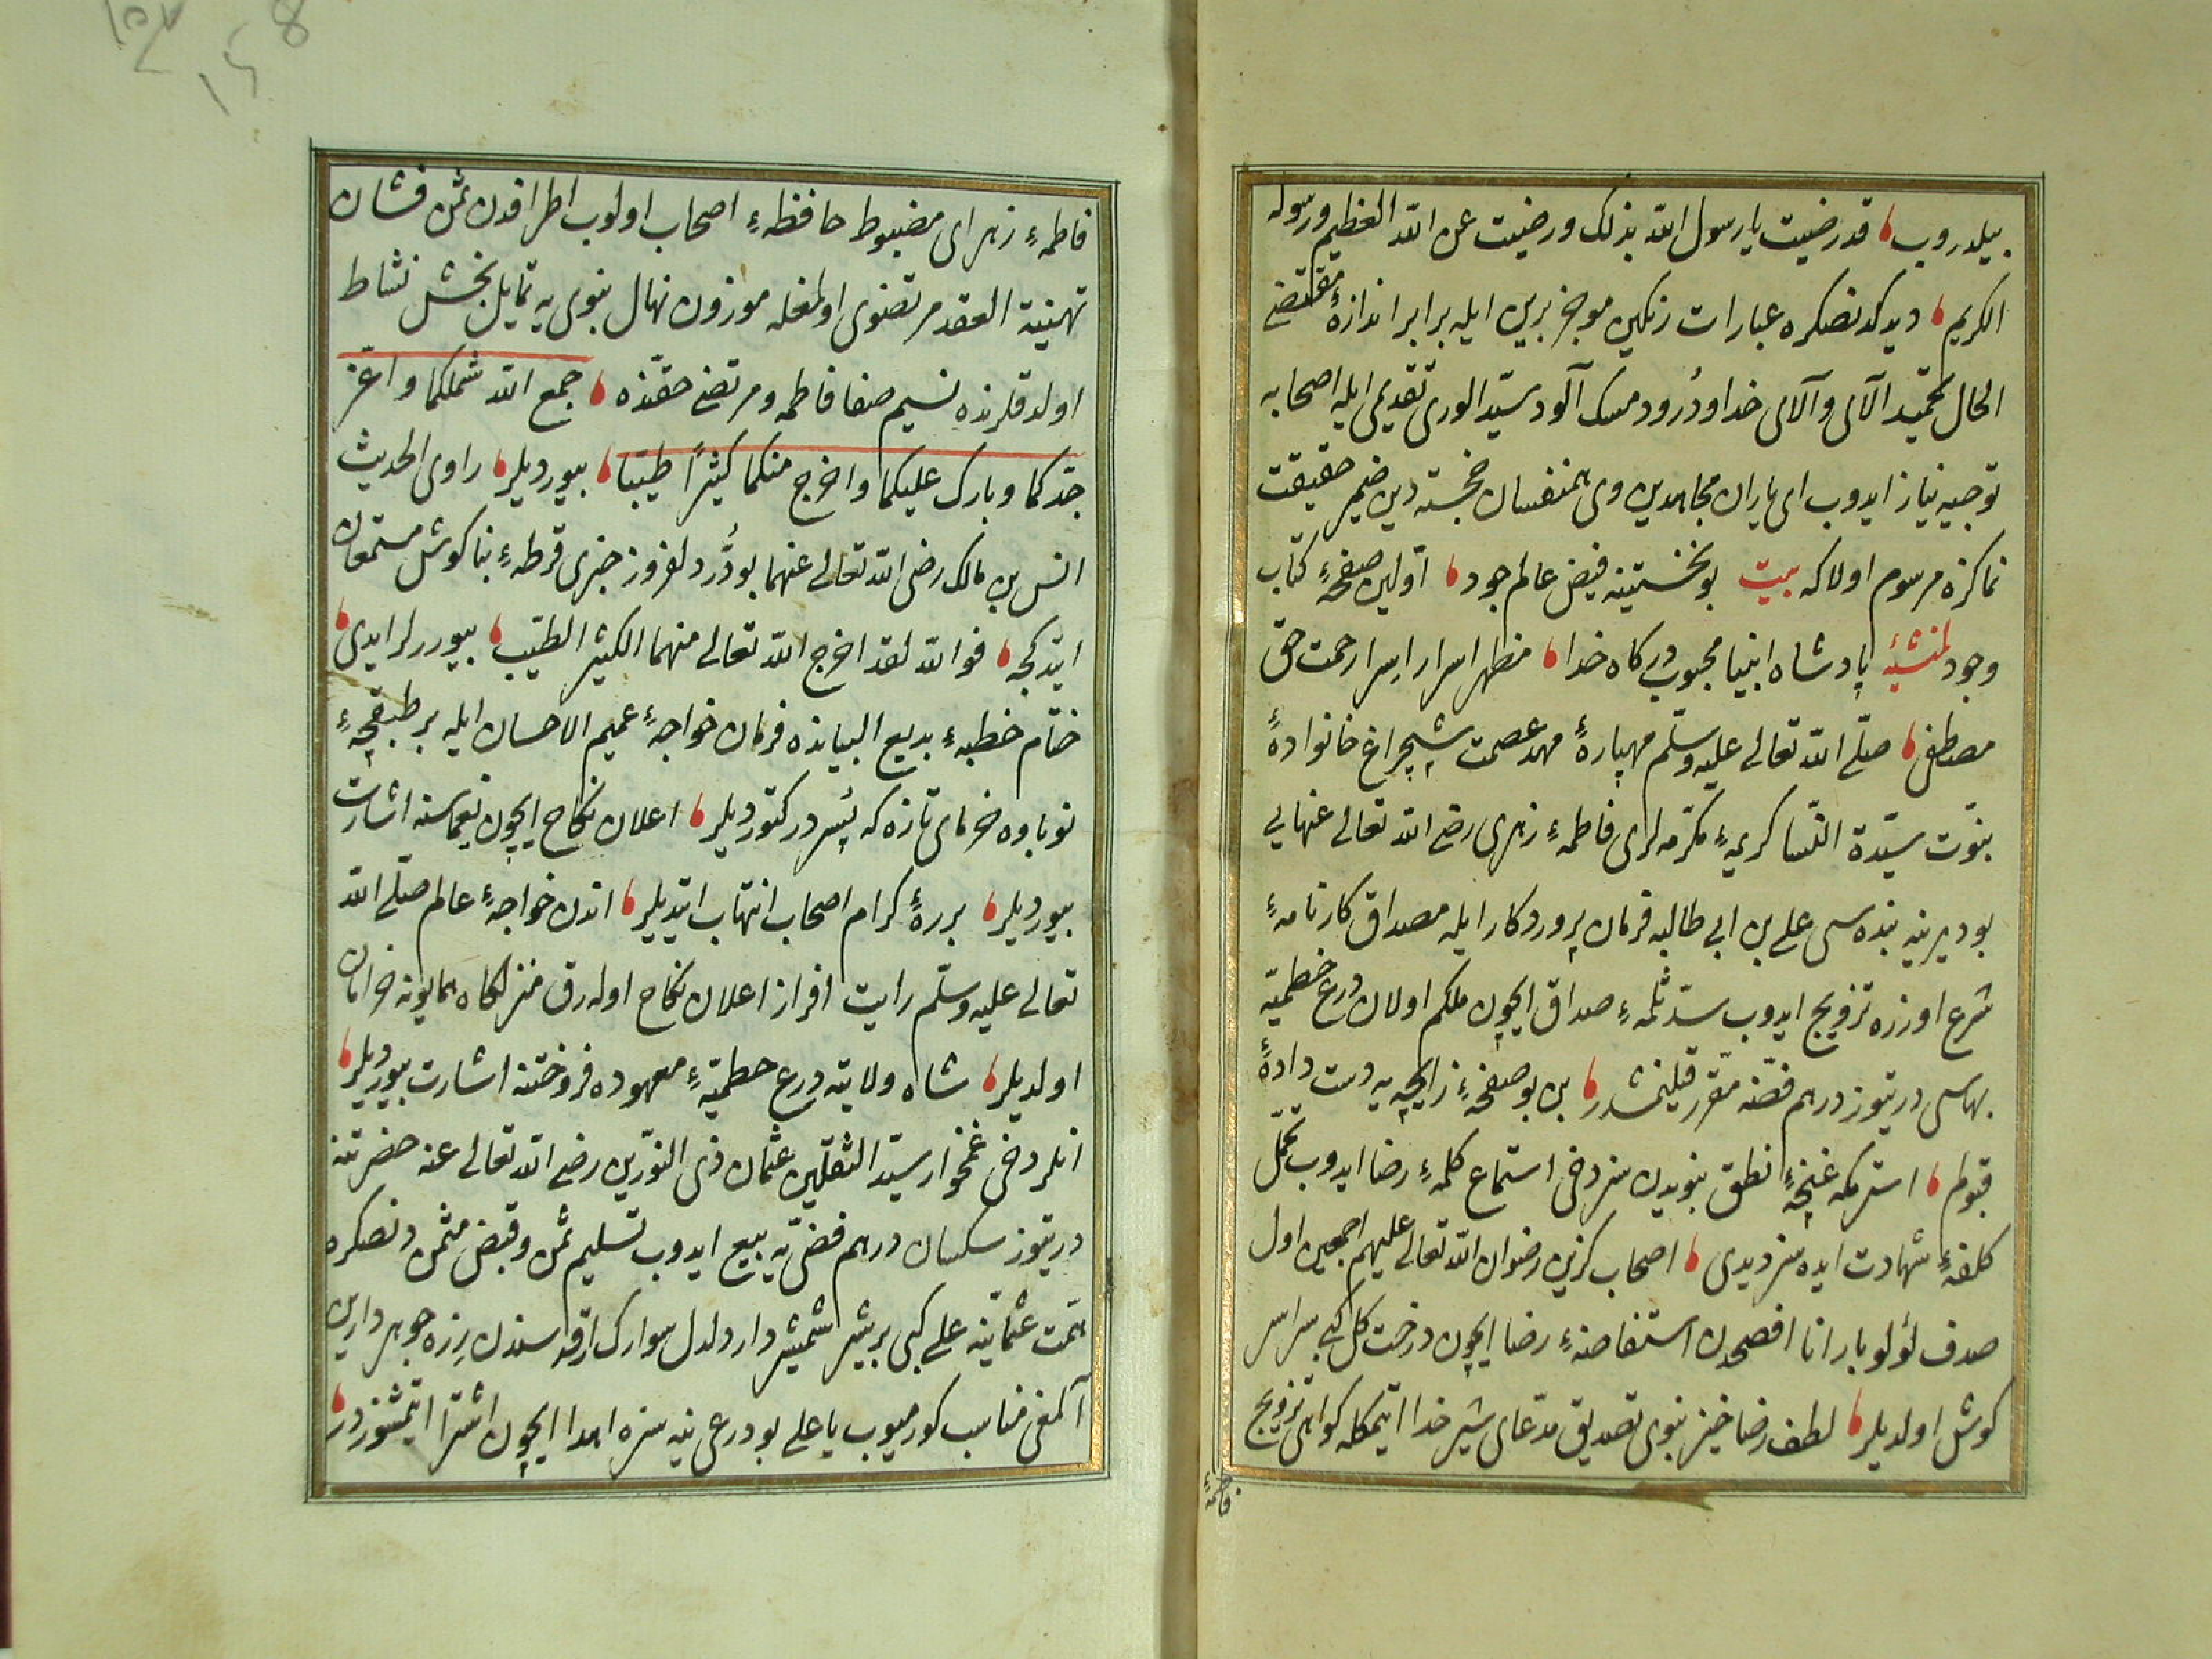 بيلدروب قد رضيت يا رسول الله بذلك ورضيت عن الله العظيم ورسوله
الكريم ديدكدنصكره عبارات رنكين موجز برين ايله برابر اندازهٔ مقتضى
الحال تحميد الآى وآلاى خدا ودُرود مسك آلود سيّد الورى تقديمى ايله اصحابه
توجيه نياز ايدوب اى ياران مجاهدين وى همنفسان خجسته دين ضمير حقيقت
نماكزه مرسوم اولاكه بيت بو نخستينه فيض عالم جود اوّلين صفحهٔ كتاب
وجود لمنشئه پادشاه انبيا محبوب دركاه خدا مظهر اسرار اسرار رحمت حق
مصطفى صلّى الله تعالى عليه وسلّم مهپارهٔ مهد عصمت شبچراغ خانوادهٔ
بنوّت سيّدة النّسا كريمهٔ مكرّمه لرى فاطمهٔ زهرى رضى الله تعالى عنهايى
بو ديرينه بنده سى على بن ابى طالبه فرمان پروردكار ايله مصداق كارنامهٔ
شرع اوزره تزويج ايدوب سدّ ثلمهٔ صداق ايچون ملكم اولان درع حطميّه
بهاسى درتيوز درهم فضّه مقرّر قيلنمشدر بن بو صفحهٔ زايچه يه دست دادهٔ
قبولم استرمكه غنچهٔ نطق بنويدن سز دخى استماع كلمهٔ رضا ايدوب تحمّل
كلفهٔ شهادت ايده سز ديدى اصحاب كزين رضوان الله تعالى عليهم اجمعين اول
صدف لؤلوبار انا افصحدن استفاضهٔ رضا ايچون درخت كل كبى سراسر
كوش اولديلر لطف رضا خيز نبوى تصديق مدّعاى شير خدا ايتمكله كواهى تزويج
فاطمهٔ
فاطمهٔ زهراى مضبوط حافظهٔ اصحاب اولوب اطرافدن ثمن فشان
تهنيية العقد مرتضوى اولمغله موزون نهال نبوى يه تمايل بخش نشاط
اولدقلرنده نسيم صفا فاطمه ومرتضى حقنده جمع الله شملكما واعزّ
جدّكما وبارك عليكما واخرج منكما كثيرًا طيّبا بيورديلر راوى الحديث
انس بن مالك رضى الله تعالى عنهما بو دُرّ دلفروز خبرى قرطهٔ بناكوش مستمعان
ايتدكجه فوالله لقد اخرج الله تعالى منهما الكثير الطيّب بيوررلر ايدى
ختام خطبهٔ بديع البيانده فرمان خواجهٔ عميم الاحسان ايله بر طبقچهٔ
نوباوه خرماى تازه كه پسر در كتورديلر اعلان نكاح ايچون يغماسنه اشارت
بيورديلر بررهٔ كرام اصحاب انتهاب ايتديلر اندن خواجهٔ عالم صلّى الله
تعالى عليه وسلّم رايت افراز اعلان نكاح اوله رق منزلكاه همايونه خرامان
اولديلر شاه ولايته درع حطميّهٔ معهوده فروختنه اشارت بيورديلر
انلر دخى غمخوار سيّد الثقلين عثمان ذى النورين رضى الله تعالى عنه حضرتنه
درتيوز سكسان درهم فضّى يه بيع ايدوب تسليم ثمن وقبض مثمن دنصكره
همّت عثمانيّه على كبى بر شير شمشيردار ودلدل سوارك ارقه سندن زره جوهرداريى
آلمغى مناسب كورميوب يا على بو درعى ينه سزه اهدا ايچون اشترا ايتمشزدر